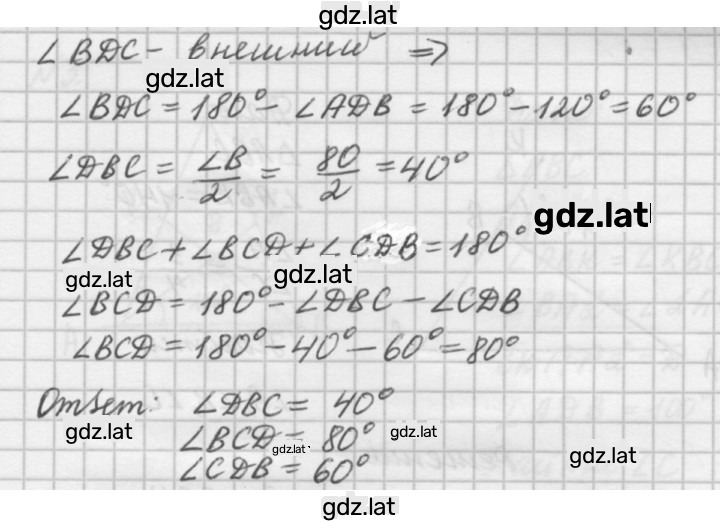 gdz.lat
∠BDC - внешний ⇒
gdz.lat
∠BDC = 180° - ∠ADB = 180° - 120° = 60°
∠DBC = ∠B/2 = 80/2 = 40°
gdz.lat
∠DBC + ∠BCD + ∠CDB = 180°
gdz.lat gdz.lat
∠BCD = 180° - ∠DBC - ∠CDB
∠BCD = 180° - 40° - 60° = 80°
Ответ: ∠DBC = 40°
gdz.lat gdz.lat
∠BCD = 80°
gdz.lat gdz.lat
∠CDB = 60°
gdz.lat